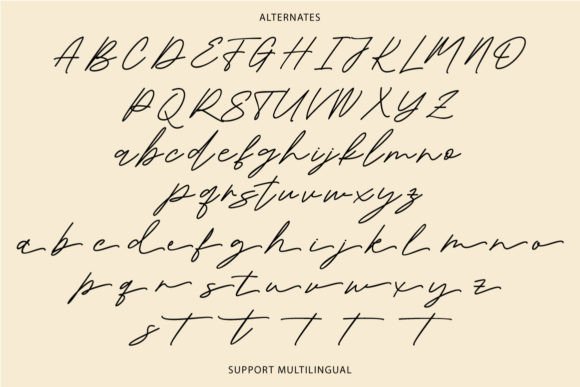 ALTERNATES
A B C D E F G H I J K L M N O
P Q R S T U V W X Y Z
a b c d e f g h i j k l m n o
p q r s t u v w x y z
a b c d e f g h i j k l m n o
p q r s t u v w x y z
s T t T T T
SUPPORT MULTILINGUAL